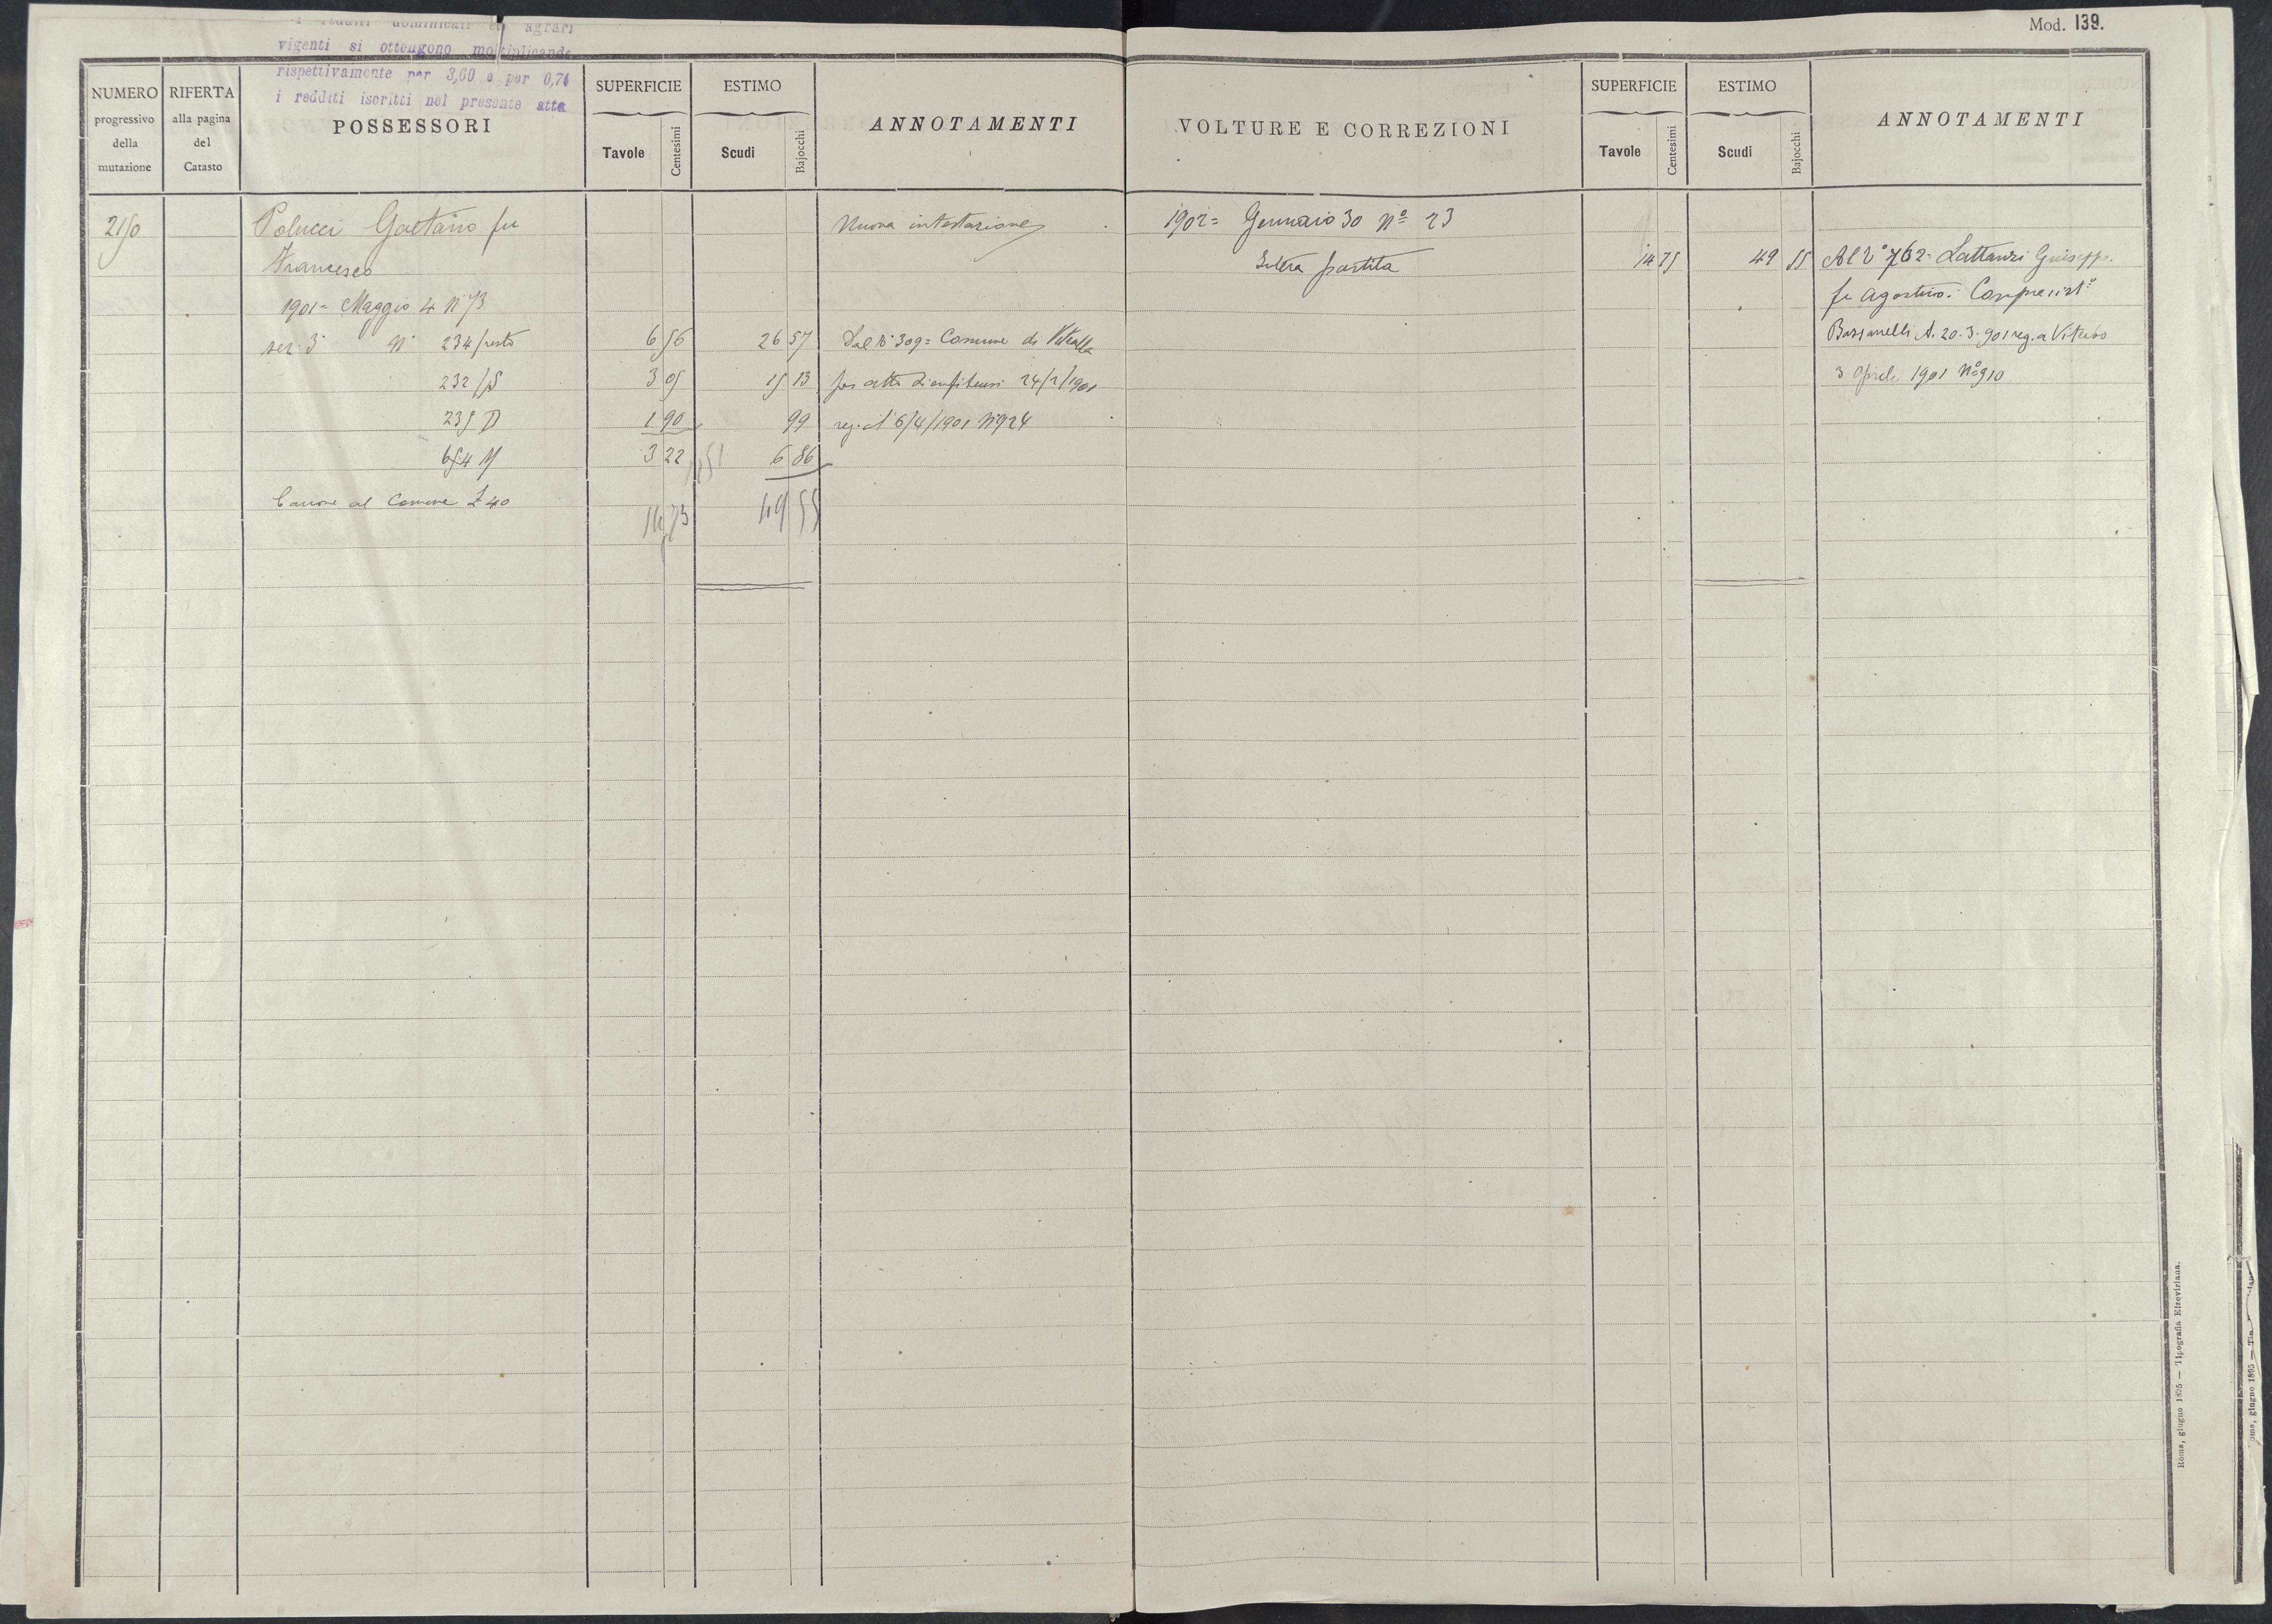 Mod. 139.
i redditi dominicali ed agrari
vigenti si ottengono moltiplicando
rispettivamente per 3,60 e per 0,76
i redditi iscritti nel presente atto
NUMERO
progressivo
della
mutazione
RIFERTA
alla pagina
del
Catasto
POSSESSORI
SUPERFICIE
Tavole
Centesimi
ESTIMO
Scudi
Bajocchi
ANNOTAMENTI
VOLTURE E CORREZIONI
SUPERFICIE
Tavole
Centesimi
ESTIMO
Scudi
Bajocchi
ANNOTAMENTI
2150 Polucci Gaetano fu Nuova intestazione
Francesco
1901= Maggio 4 N° 73
sez. 3ª N° 234/resto 6 56 26 57 Dal N° 309= Comune di Vetralla
232/S 3 05 15 13 per atto di enfiteusi 24/2/1901
235 D 1 90 99 reg. il 6/4/1901 N° 924
654 M 3 22 6 86
14 73 49 55
Canone al Comune £ 40
1902= Gennaio 30 N° 23
Intera partita 14 75 49 55 Al N° 762= Lattanzi Giuseppe
fu Agostino.
Bassanelli A. 20.3.901 reg. a Viterbo
3 Aprile 1901 N° 910
Roma, giugno 1895 — Tipografia Elzeviriana.
oma, giugno 1895 — Tip